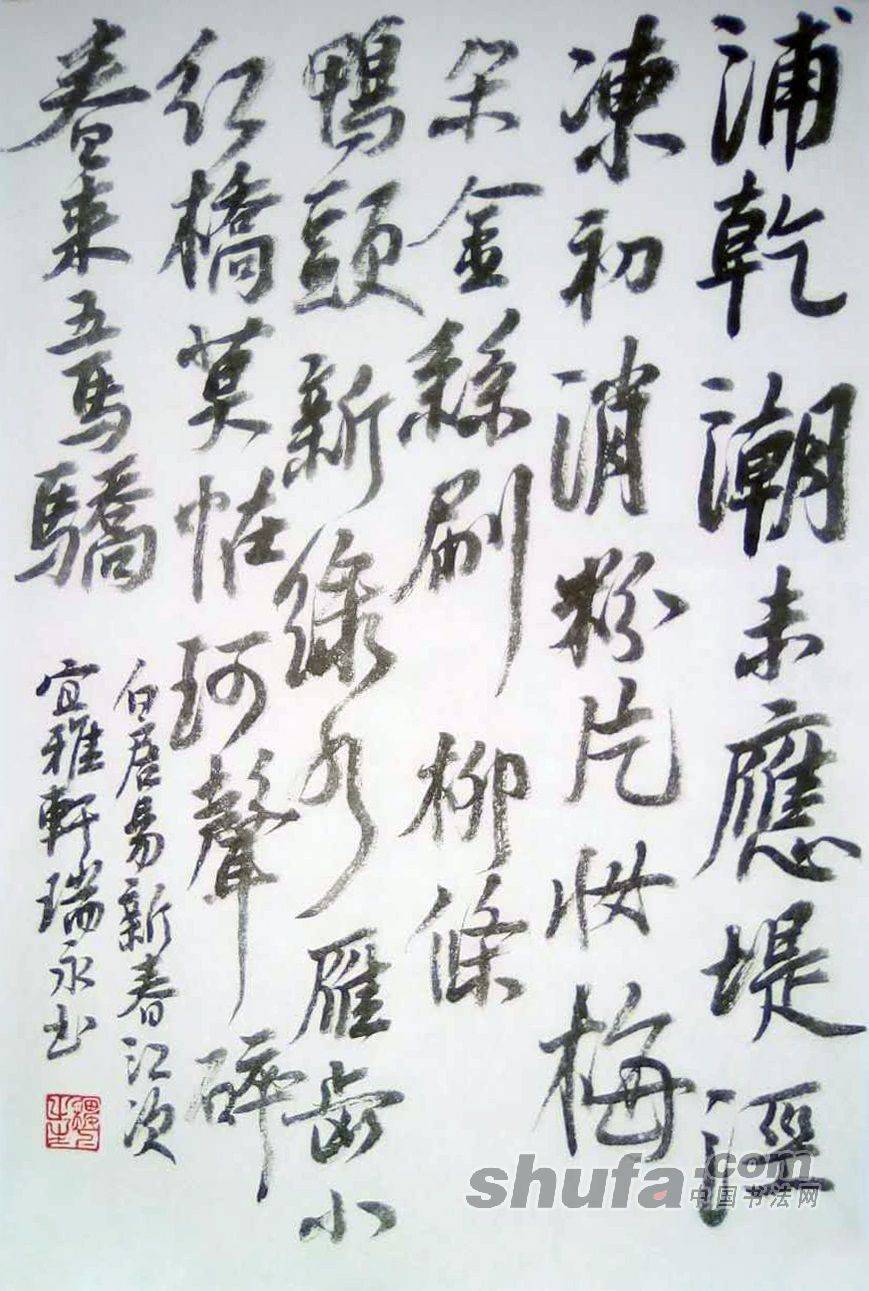 浦乾潮未應堤溼
凍初消粉片妝梅
朵金絲刷柳條
鴨頭新綠水雁齒小
紅橋莫怪珂聲碎
春來五馬驕
白居易新春江次
宜雅軒瑞永书
shufa.com
中国书法网